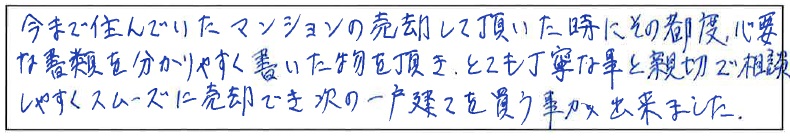 今まで住んでいたマンションの売却して頂いた時にその都度、必要
な書類を分かりやすく書いた物を頂き、とても丁寧な事と親切で相談
しやすくスムーズに売却でき次の一戸建てを買う事が出来ました。